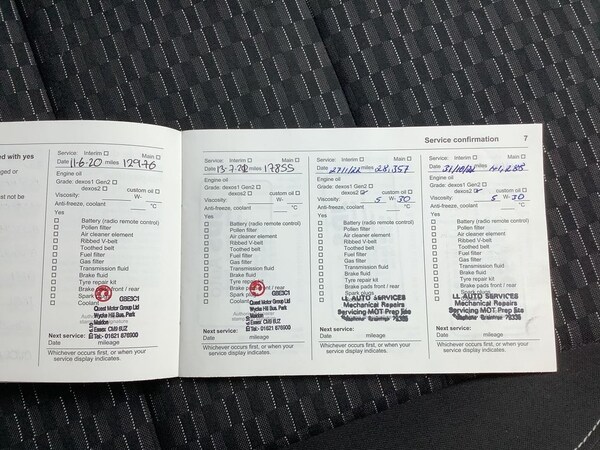 Service confirmation 7
ed with yes
ged or
st not be
Service: Interim ☐ Main ☐
Date 11-6-20 miles 12976
Engine oil
Grade: dexos1 Gen2 ☐
dexos2 ☐ custom oil ☐
Viscosity: W-
Anti-freeze, coolant °C
Yes
☐ Battery (radio remote control)
☐ Pollen filter
☐ Air cleaner element
☐ Ribbed V-belt
☐ Toothed belt
☐ Fuel filter
☐ Gas filter
☐ Transmission fluid
☐ Brake fluid
☐ Tyre repair kit
☐ Brake pads front / rear
☐ Spark
☐ Coolant
GBE3C1
Quest Motor Group Ltd
Wycke Hill Bus. Park
Maldon
Essex CM9 6UZ
Tel:- 01621 876900
Next service:
Date mileage
Whichever occurs first, or when your
service display indicates.
Service: Interim ☐ Main ☐
Date 13-7-21 miles 17855
Engine oil
Grade: dexos1 Gen2 ☐
dexos2 ☐ custom oil ☐
Viscosity: W-
Anti-freeze, coolant °C
Yes
☐ Battery (radio remote control)
☐ Pollen filter
☐ Air cleaner element
☐ Ribbed V-belt
☐ Toothed belt
☐ Fuel filter
☐ Gas filter
☐ Transmission fluid
☐ Brake fluid
☐ Tyre repair kit
☐ Brake front / rear
☐ Spark
☐ Coolant
GBE3C1
Quest Motor Group Ltd
Wycke Hill Bus. Park
Maldon
Essex CM9 6UZ
Tel:- 01621 876900
Next service:
Date mileage
Whichever occurs first, or when your
service display indicates.
Service: Interim ☐ Main ☐
Date miles 28,357
Engine oil
Grade: dexos1 Gen2 ☐
dexos2 custom oil ☐
Viscosity: 5 W- 30
Anti-freeze, coolant °C
Yes
☐ Battery (radio remote control)
☐ Pollen filter
☐ Air cleaner element
☐ Ribbed V-belt
☐ Toothed belt
☐ Fuel filter
☐ Gas filter
☐ Transmission fluid
☐ Brake fluid
☐ Tyre repair kit
☐ Brake pads front / rear
☐ Spark plugs
LL AUTO SERVICES
Mechanical Repairs
Servicing MOT Prep
Next service:
Date mileage
Whichever occurs first, or when your
service display indicates.
Service: Interim ☐ Main ☐
Date miles
Engine oil
Grade: dexos1 Gen2 ☐
dexos2 custom oil ☐
Viscosity: 5 W- 30
Anti-freeze, coolant °C
Yes
☐ Battery (radio remote control)
☐ Pollen filter
☐ Air cleaner element
☐ Ribbed V-belt
☐ Toothed belt
☐ Fuel filter
☐ Gas filter
☐ Transmission fluid
☐ Brake fluid
☐ Tyre repair kit
☐ Brake pads front / rear
☐ Spark plugs
LL AUTO SERVICES
Mechanical Repairs
Servicing MOT Prep
Next service:
Date mileage
Whichever occurs first, or when your
service display indicates.